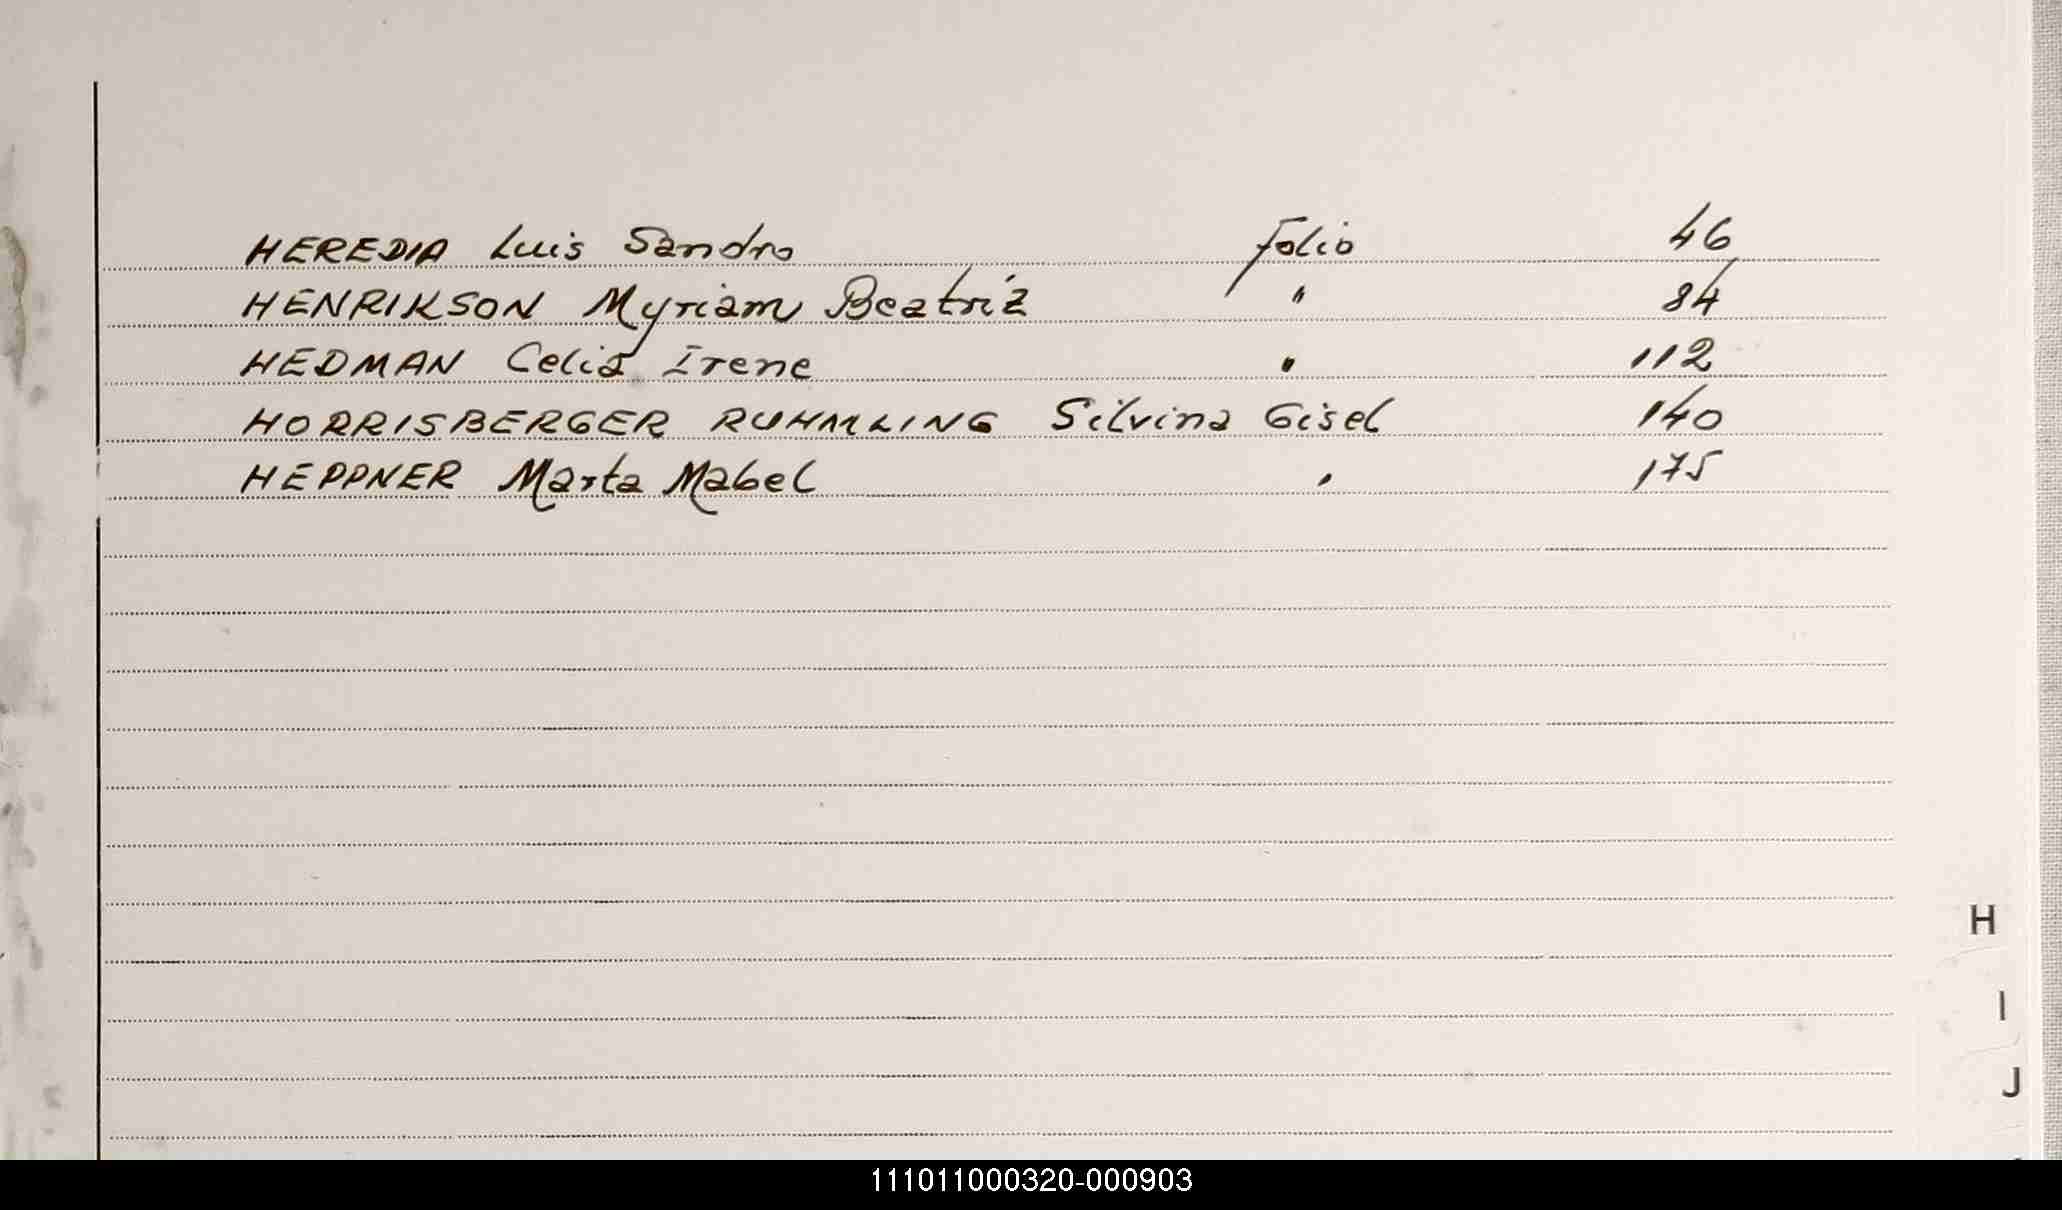 HEREDIA Luis Sandro Folio 46
HENRIKSON Myriam Beatriz " 84
HEDMAN Celia Irene " 112
HORRISBERGER RUHMLING Silvina Gisel 140
HEPPNER Marta Mabel " 175
H
I
J
111011000320-000903